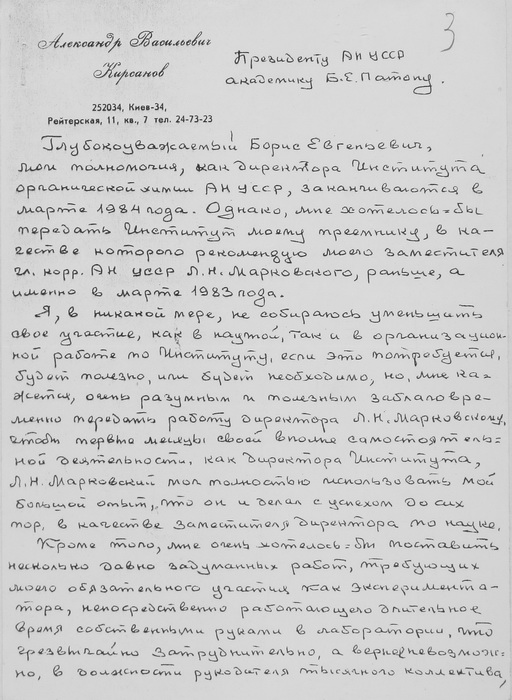 3
Александр Васильевич
Кирсанов
252034, Киев-34,
Рейтерская, 11, кв., 7 тел. 24-73-23
Президенту АН УССР
академику Б.Е.Патону.
Глубокоуважаемый Борис Евгеньевич,
мои полномочия, как директора Института
органической химии АН УССР, заканчиваются в
марте 1984 года. Однако, мне хотелось=бы
передать Институт моему преемнику, в ка-
честве которого рекомендую моего заместителя
чл. корр. АН УССР Л.Н.Марковского, раньше, а
именно в марте 1983 года.
Я, в никакой мере, не собираюсь уменьшить
свое участие, как в научной, так и в организацион-
ной работе по Институту, если это потребуется,
будет полезно, или будет необходимо, но, мне ка-
жется, очень разумным и полезным заблаговре-
менно передать работу директора Л.Н.Марковскому,
чтобы первые месяцы своей вполне самостоятель=
ной деятельности, как директора Института,
Л.Н.Марковский мог полностью использовать мой
большой опыт, что он и делал с успехом до сих
пор, в качестве заместителя директора по науке.
Кроме того, мне очень хотелось=бы поставить
несколько давно задуманных работ, требующих
моего обязательного участия как эксперимента-
тора, непосредственно работающего длительное
время собственными руками в лаборатории, что
чрезвычайно затруднительно, а вернее невозмож-
но, в должности руководителя тысячного коллектива,